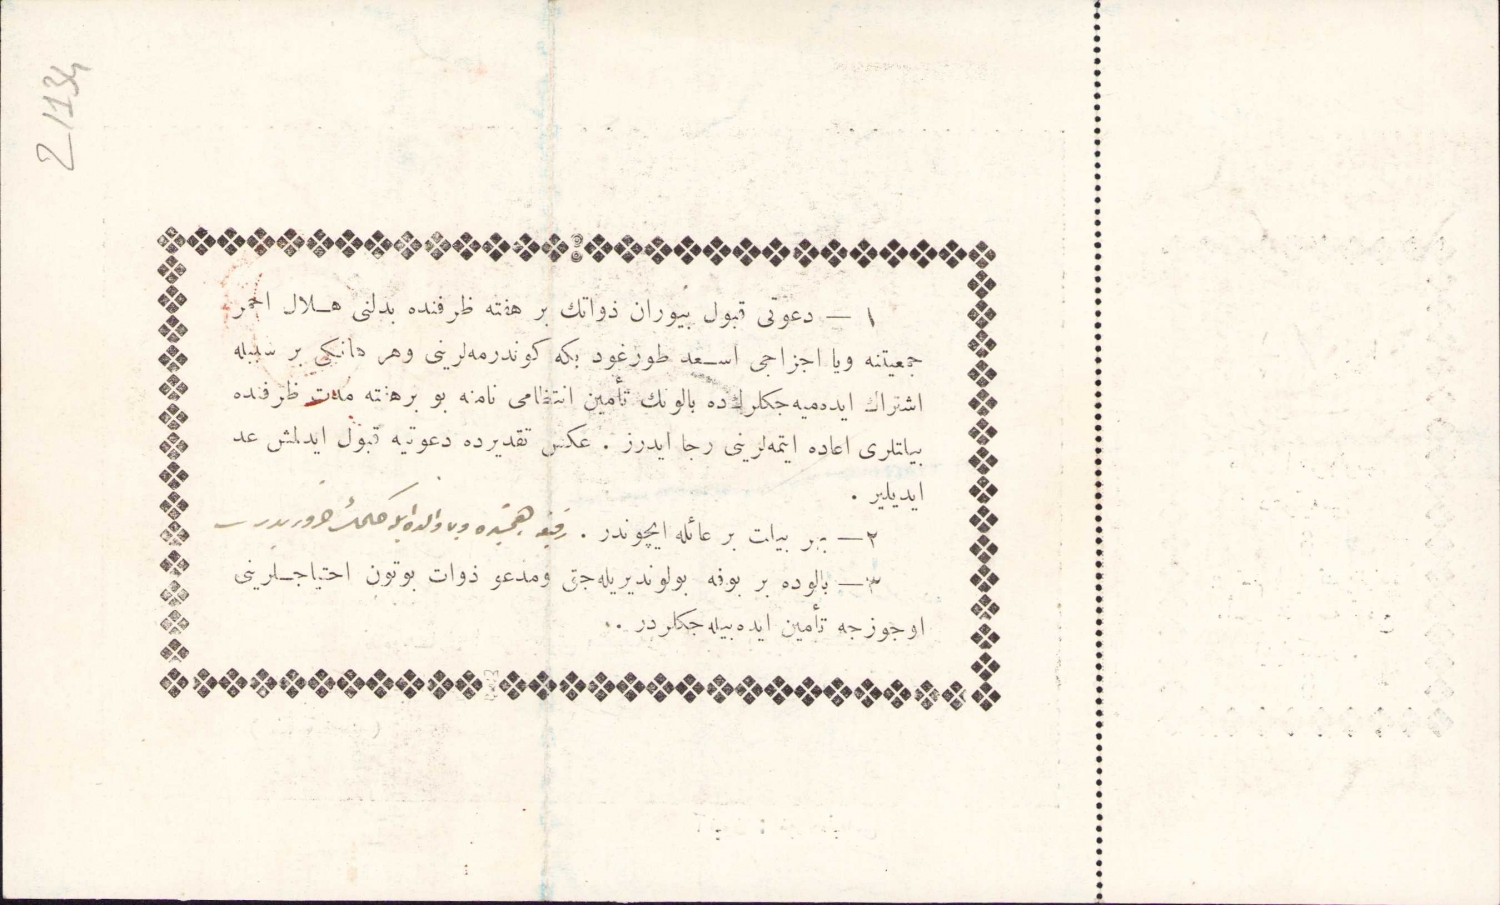 21134
١ — دعوتی قبول بیوران ذواتك بر هفته ظرفنده بدلنی هـلال احمر
جمعیتنه ویا اجزاجی اسـعد طورغود بكه كوندرمه‌لرینی وهر هانكی بر سببله
اشتراك ایده‌میه‌جكلرك‌ده بالونك تأمین انتظامی نامنه بو برهفته مدت ظرفنده
بیلتلری اعاده ایتمه‌لرینی رجا ایدرز . عكس تقدیرده دعوتیه قبول ایدلمش عد
ایدیلیر .
٢— هر بیلت بر عائله ایچوندر .
٣— بالوده بر بوفه بولوندیریله‌جق ومدعو ذوات بوتون احتیاجـلرینی
اوجوزجه تأمین ایده‌بیله‌جكلردر ..